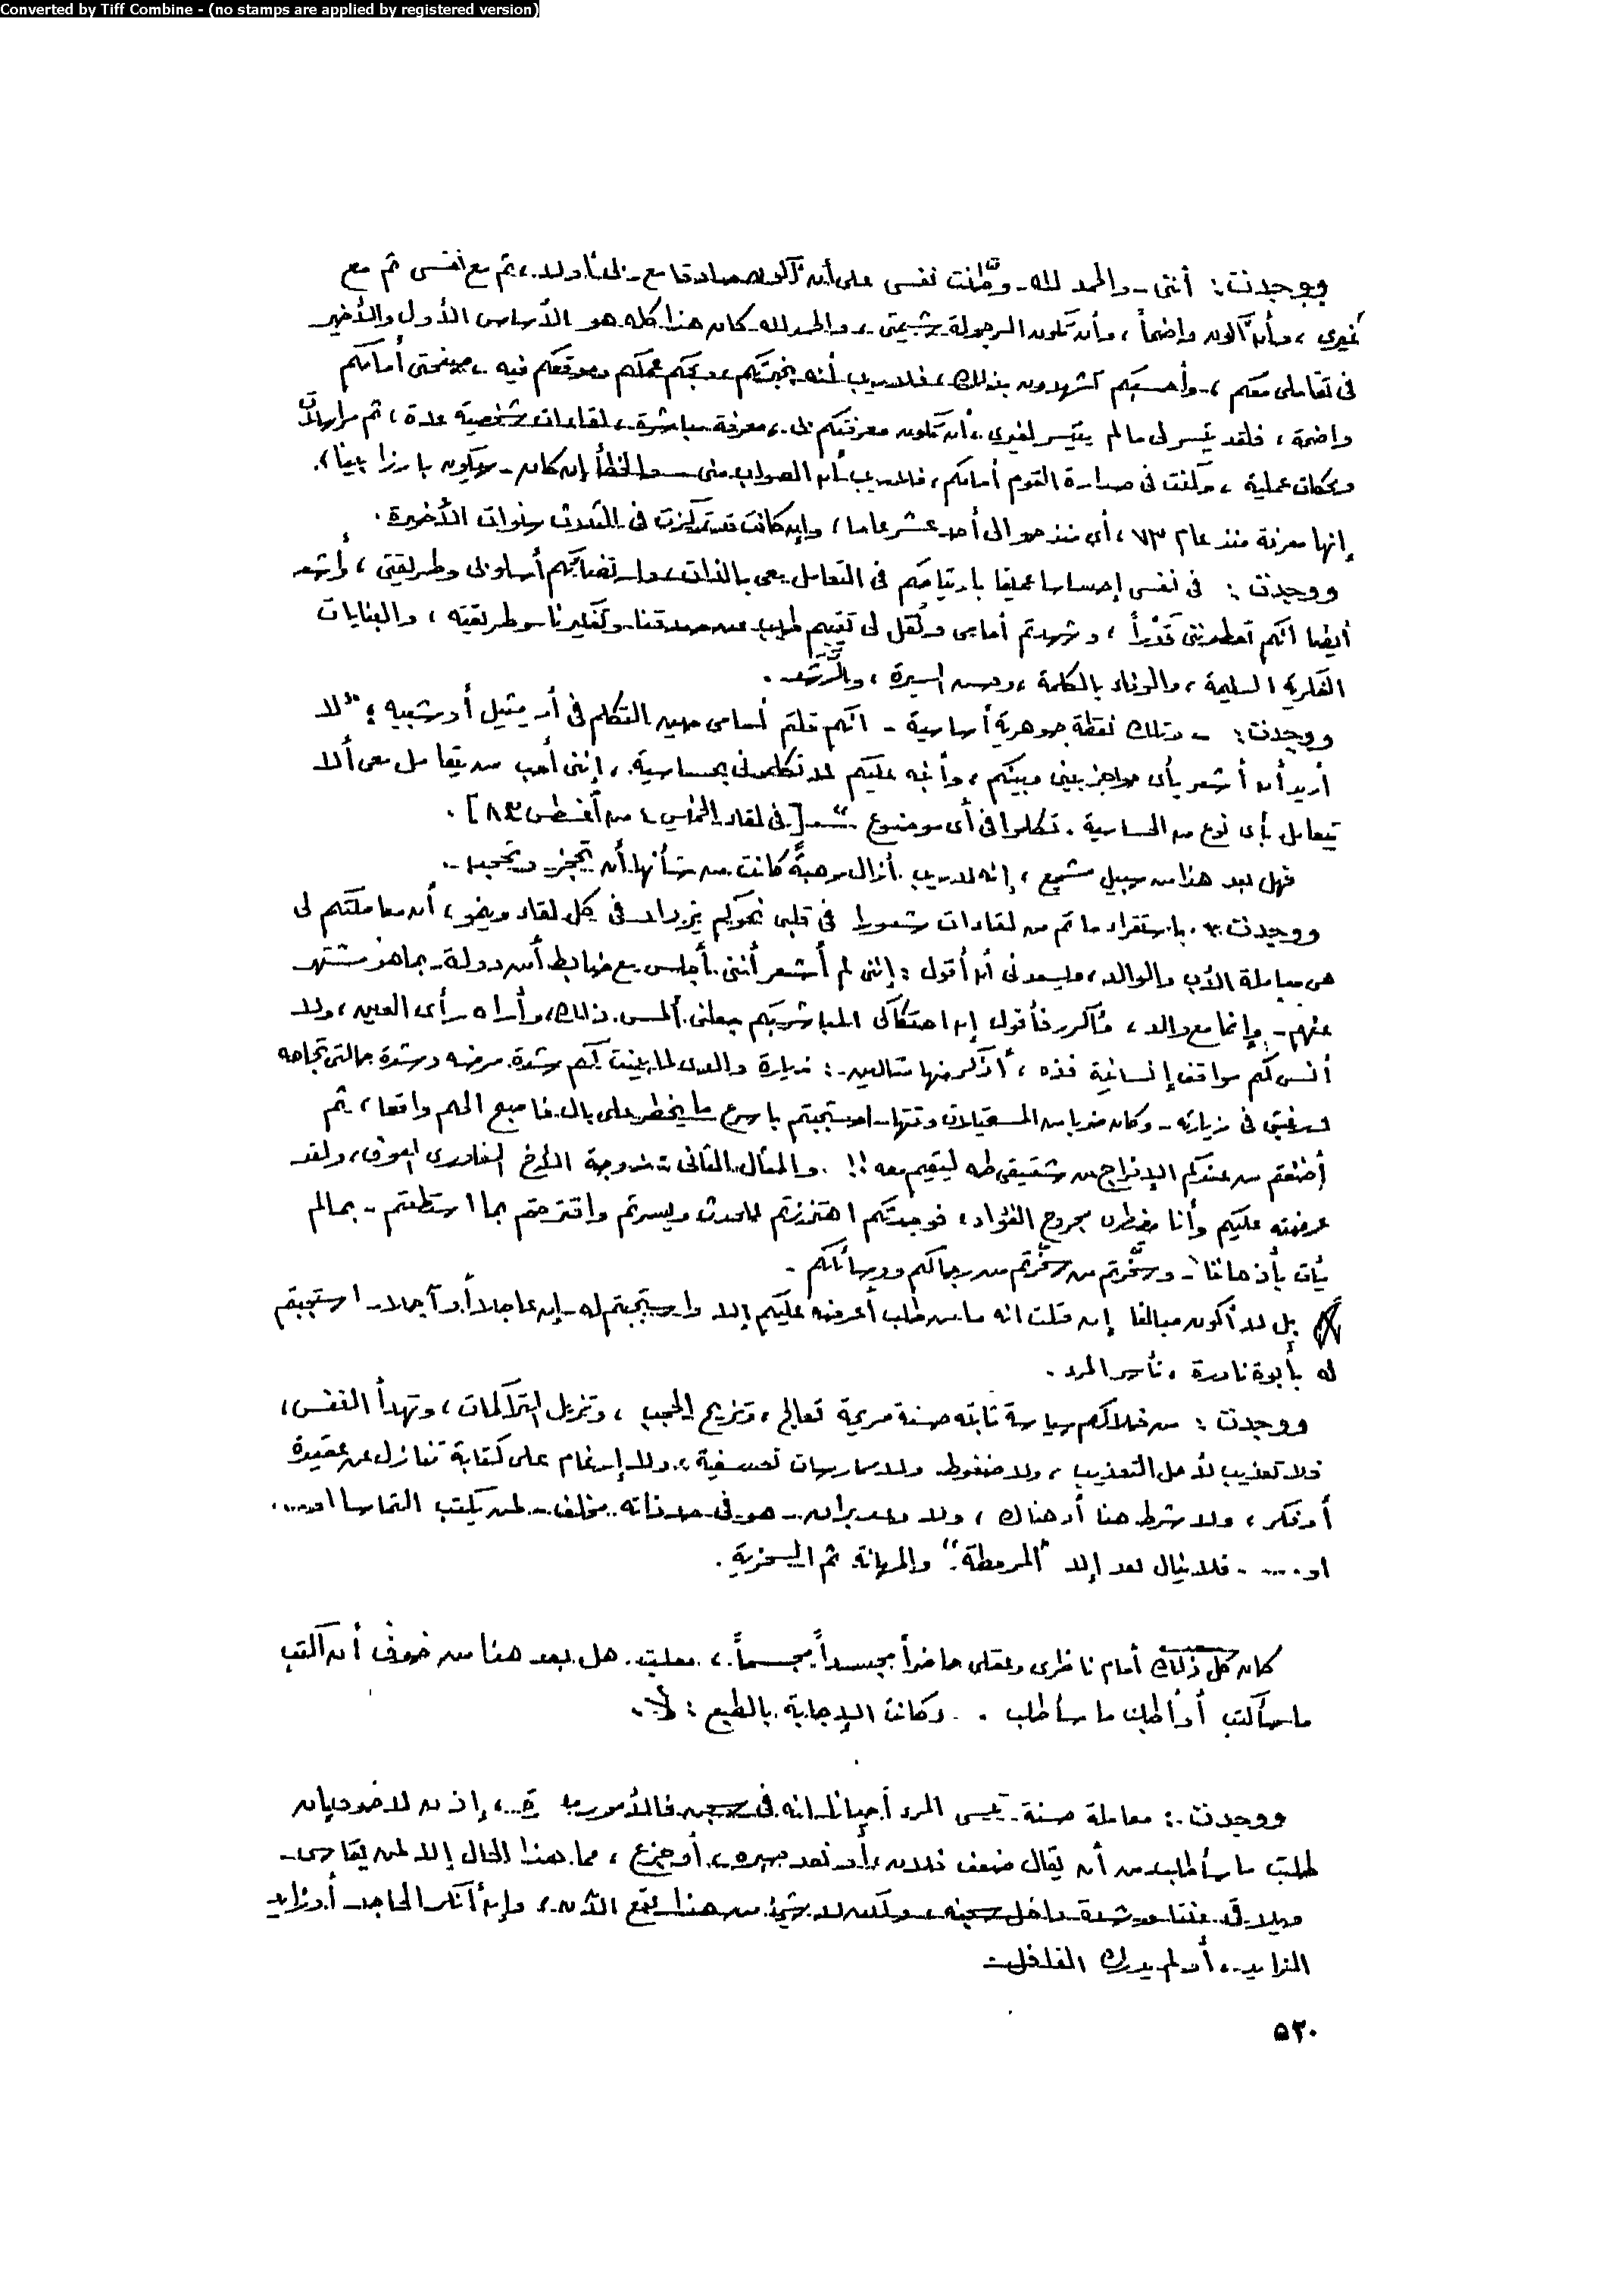 Converted by Tiff Combine - (no stamps are applied by registered version)
ووجدت : أننى - والحمد لله - وطنت نفسى على أن أكون صادقا مع ربى أولا ، ثم مع نفسى ثم مع
غيرى ، وأن أكون واضحاً ، وأن تكون الرجولة شيمتى ، والحمد لله كان هذا كله هو الأساس الأول والأخير
فى تعاملى معكم ، وأحسبكم تشهدون بذلك ، فلا ريب أنه بخبرتكم ، وبحكم عملكم وموقعكم فيه ، صفحتى أمامكم
واضحة ، فلقد تيسر لى مالم يتيسر لغيرى ، أن تكون معرفتكم بى ، معرفة مباشرة ، لقاءات شخصية عدة ، ثم مراسلات
ومحكات عملية ، وكنت فى صدارة القوم أمامكم ، فلا ريب أن الصواب منى والخطأ إن كان - سيكون بارزا بينا ،
إنها معرفة منذ عام ٧٣ ، أى منذ حوالى أحد عشر عاما ، وإن كانت قد تركزت فى الثلاث سنوات الأخيرة .
ووجدت : فى نفسى إحساسا عميقا بارتياحكم فى التعامل معى بالذات ، وارتضائكم أسلوبى وطريقتى ، وأشعر
أيضا أنكم تعطوننى قدراً ، وشهدتم أمامى ونقل لى تقييم طيب عن صدقنا وتفكيرنا وطريقته ، والبنايات
الفكرية السليمة ، والوفاء بالكلمة ، وحسن السيرة ، والرشد .
ووجدت : - وتلك نقطة جوهرية أساسية - انكم قلتم أمامى حين التكلم فى أمر مثيل أو شبيه ؛ " لا
أريد أن أشعر بأى حواجز بينى وبينكم ، وأنبه عليكم لا تكلمونى بحساسية ، إننى أحب من يتعامل معى ألا
يتعامل بأى نوع من الحساسية . تكلموا فى أى موضوع " [ فى لقاء الخميس ٤ من أغسطس ٨٣ ] .
فهل بعد هذا من سبيل مشجع ، إنه لا ريب أزال رهبةً كانت من شأنها أن تحجز وتحجب .
ووجدت : باستقراء ما تم من لقاءات شعورا فى قلبى نحوكم يزداد فى كل لقاء وينمو ، أن معاملتكم لى
هى معاملة الأب والوالد ، وليسعدنى أن أقول : إننى لم أشعر أننى أجلس مع ضابط أمن دولة - بما هو مشتهر
عنهم - وإنما مع والد ، وأكرر فأقول إن احتكاكى المباشر بكم جعلنى ألمس ذلك ، وأراه رأى العين ، ولا
أنسى لكم مواقف إنسانية فذه ، أذكر منها مثالين : زيارة والدى لما بينت لكم شدة مرضه وشدة حالتى تجاهه
لرغبتى فى زيارته - وكان ضربا من المستحيلات وقتها - استجبتم بأسرع ما يخطر على بال فأصبح الحلم واقعا ، ثم
أضفتم من عندكم الإفراج عن شقيقى طه ليقيم معه !! . والمثال الثانى : زوجة الأخ البغدادى المعوق ، ولقد
عرضته عليكم وأنا مفطور مجروح الفؤاد ، فوجدتكم اهتززتم للحدث ويسرتم واقترحتم بما استطعتم - بمالم
يأت بأذهاننا - وسخّرتم من سخّرتم من رجالكم ووسائلكم -
بل لا أكون مبالغا إن قلت انه ما من طلب أعرضه عليكم إلا واستجبتم له - إن عاجلا أو آجلا - استجبتم
له بأبوة نادرة ، تأسر المرء .
ووجدت : من خلالكم سياسة ثابتة حسنة مريحة تعالج ، وتزيح الحجب ، وتزيل التراكمات ، وتهدأ النفس ،
فلا تعذيب لأجل التعذيب ، ولا ضغوط ولا ممارسات تعسفية ، ولا إرغام على كتابة تنازل عن عقيدة
أو فكر ، ولا شرط هنا أو هناك ، ولا وعد براق - هو فى حد ذاته مخلف - لمن يكتب التماسا او .....
او ..... فلا ينال بعد إلا "المرمطة" والمهانة ثم السخرية .
كان كل ذلك أمام ناظرى وعقلى حاضراً مجسداً مجسماً ، هل بعد هذا من خوف أن أكتب
ما سأكتب أو أطلب ما سأطلب . وكانت الإجابة بالطبع : لأ .
ووجدت : معاملة حسنة - ينسى المرء أحيانا انه فى سجن فالأمور ، إذن لا خوف إن
طلبت ما سأطلب من أن يقال ضعف فلان ، أو نفد صبره ، أو جزع ، فما هذا الحال إلا لمن يقاسى
ويلاقى عنتا وشدة داخل سجنه ، ولكن لا شئ من هذا يقع الآن ، وإن أنكر الجاحد أو زايد
المزايد ، أو لم يدرك الغافل
٥٢٠